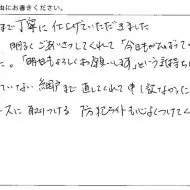 由にお書きください。
まで丁寧に仕上げていただきました
明るくごあいさつしてくれて「今日もがんばって
た。「明日もよろしくお願いします」という気持ち
ていない網戸まで直してくれて申し訳なかった
ースに取りつける 防犯ライトも心よくつけてく